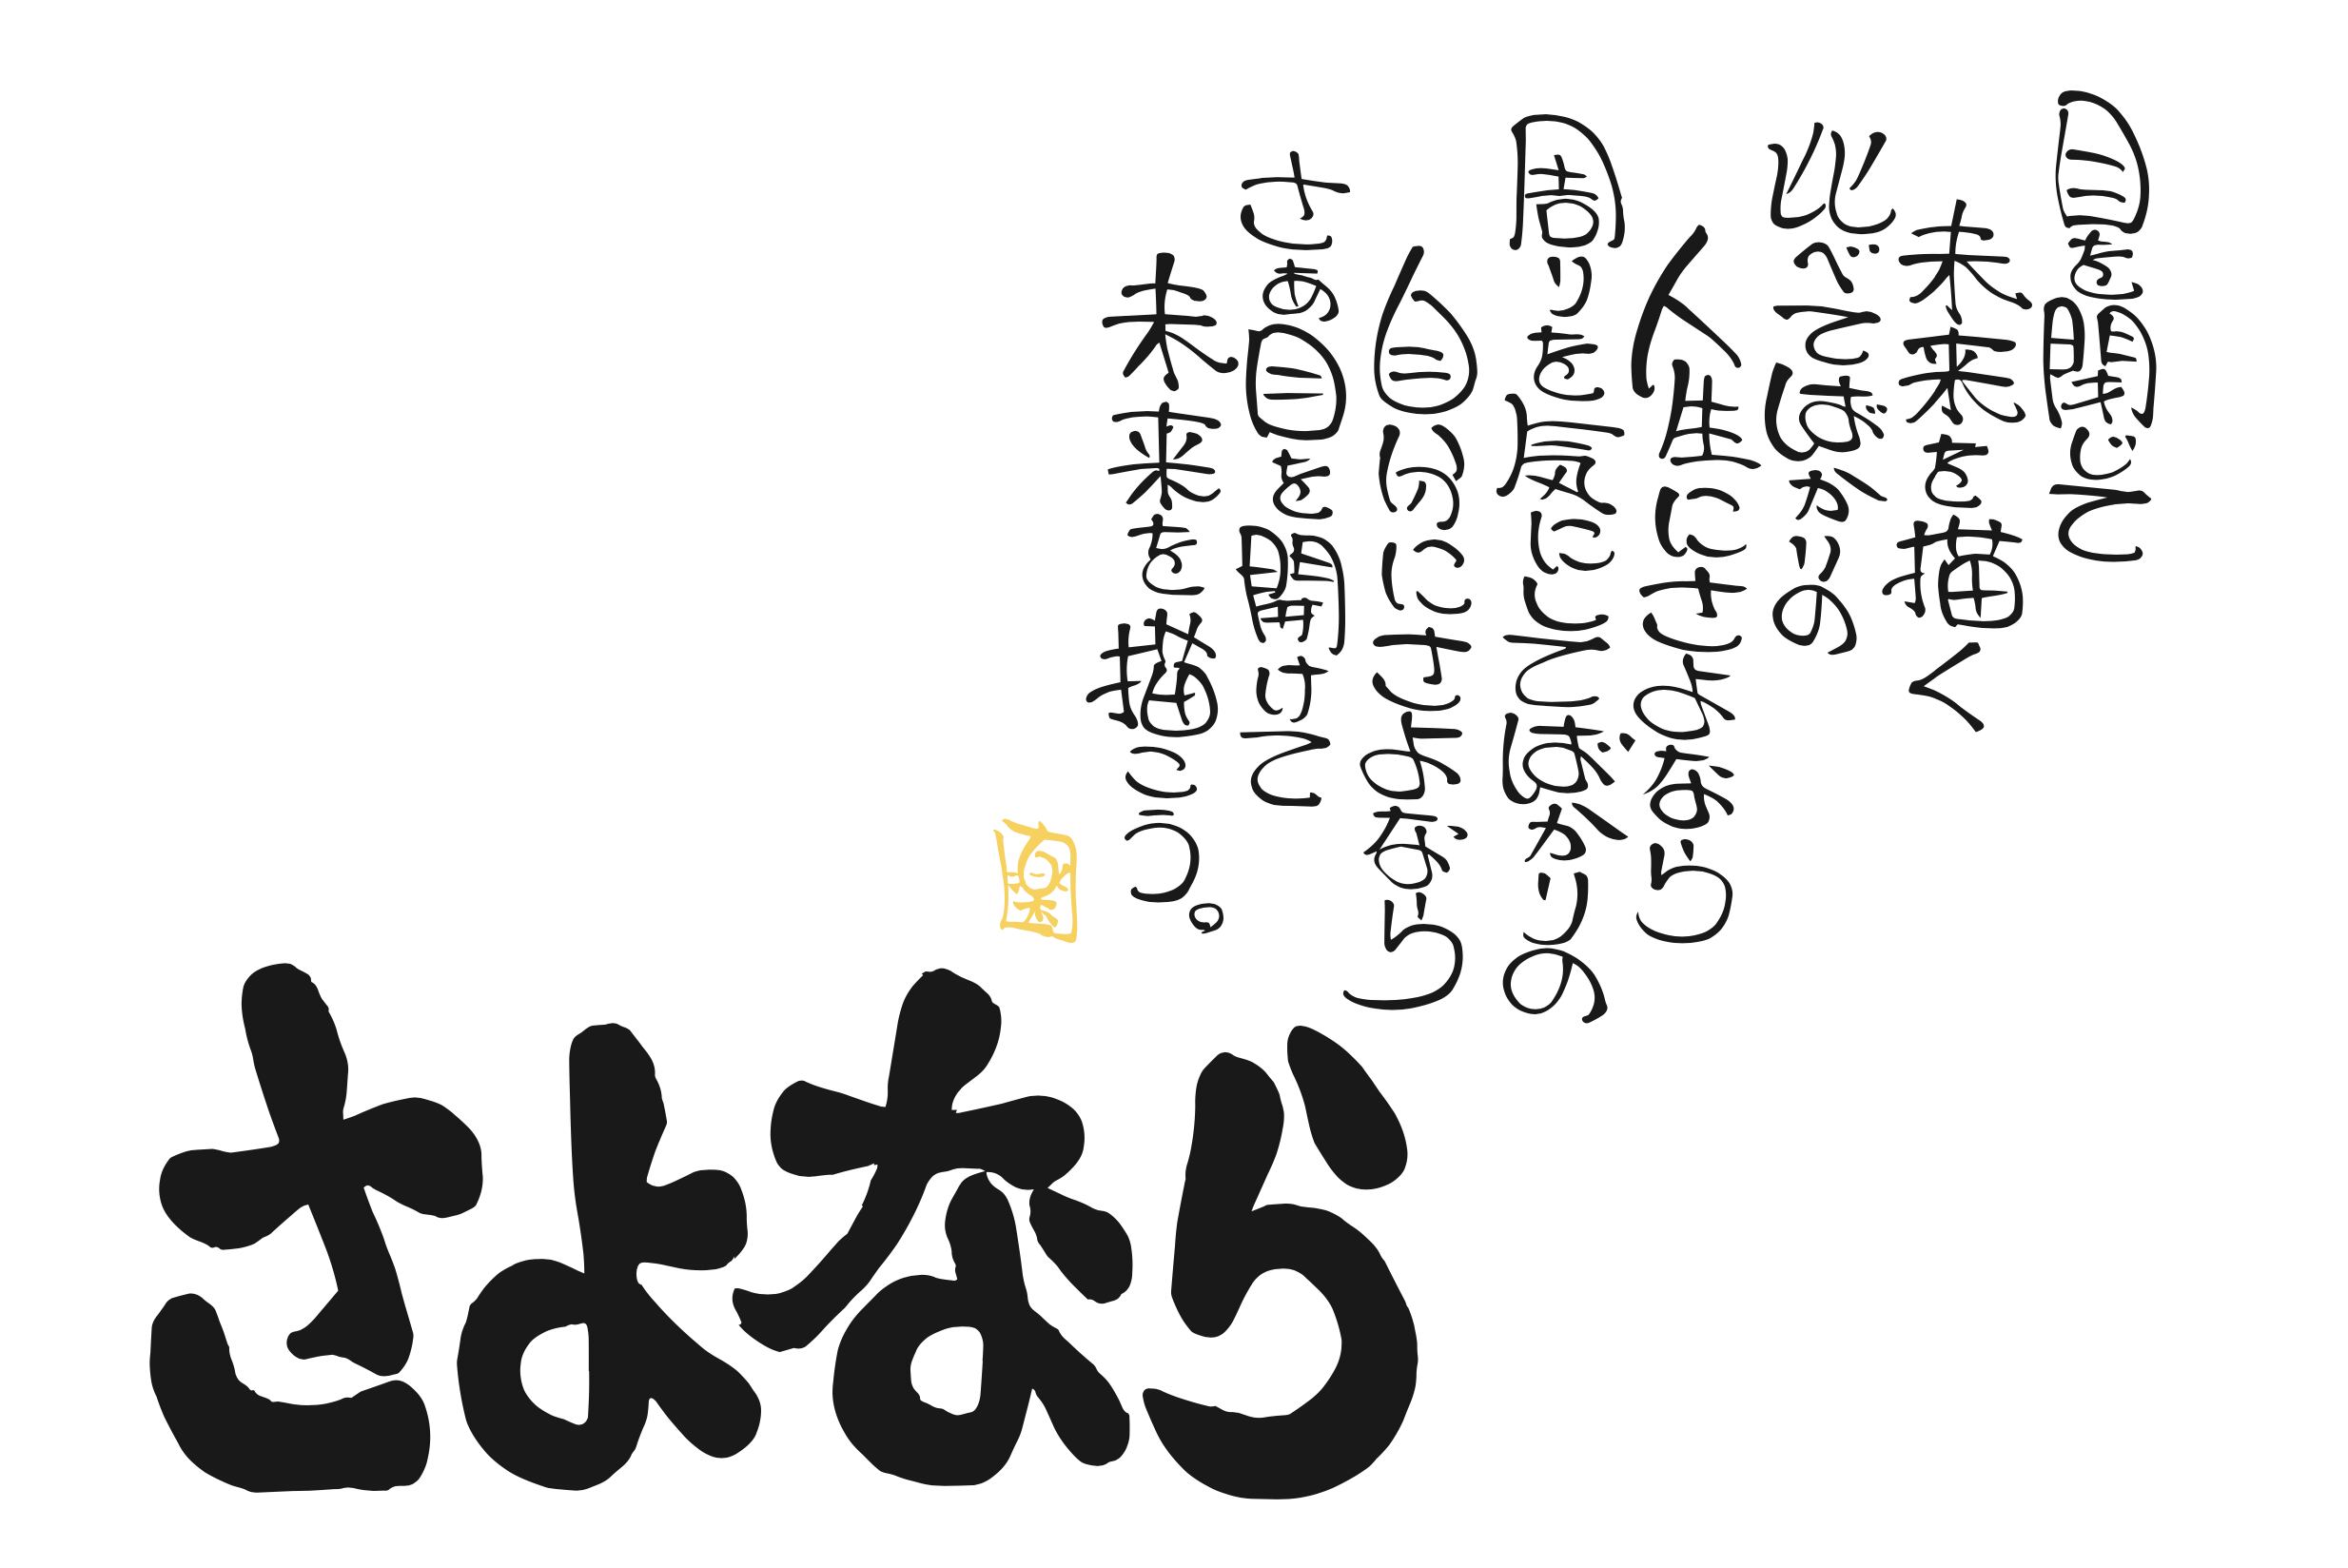 目を閉じて
未来を描く
比べてばかりの
人生にさよなら
周りを気にしてばかりの
自分にさよなら
さあ目を開けて
未来を描こう。
さよなら